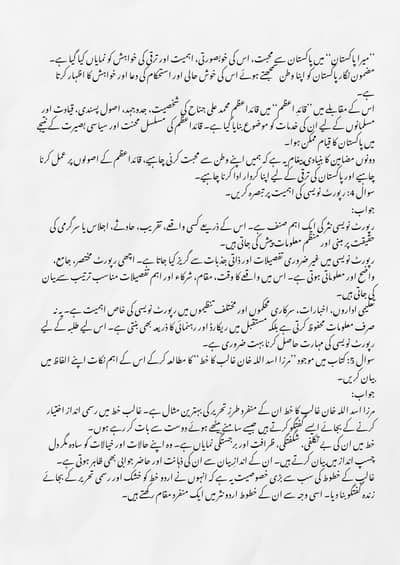 ’’میرا پاکستان‘‘ میں پاکستان سے محبت، اس کی خوبصورتی، اہمیت اور ترقی کی خواہش کو نمایاں کیا گیا ہے۔
مضمون نگار پاکستان کو اپنا وطن سمجھتے ہوئے اس کی خوش حالی اور استحکام کی دعا اور خواہش کا اظہار کرتا
ہے۔
اس کے مقابلے میں ’’قائد اعظم‘‘ میں قائداعظم محمد علی جناح کی شخصیت، جدوجہد، اصول پسندی، قیادت اور
مسلمانوں کے لیے ان کی خدمات کو موضوع بنایا گیا ہے۔ قائداعظم کی مسلسل محنت اور سیاسی بصیرت کے نتیجے
میں پاکستان کا قیام ممکن ہوا۔
دونوں مضامین کا بنیادی پیغام یہ ہے کہ ہمیں اپنے وطن سے محبت کرنی چاہیے، قائداعظم کے اصولوں پر عمل کرنا
چاہیے اور پاکستان کی ترقی کے لیے اپنا کردار ادا کرنا چاہیے۔
سوال 4: رپورٹ نویسی کی اہمیت پر تبصرہ کریں۔
جواب:
رپورٹ نویسی نثر کی ایک اہم صنف ہے۔ اس کے ذریعے کسی واقعے، تقریب، حادثے، اجلاس یا سرگرمی کی
حقیقت پر مبنی اور منظم معلومات پیش کی جاتی ہیں۔
رپورٹ نویسی میں غیر ضروری تفصیلات اور ذاتی جذبات سے گریز کیا جاتا ہے۔ اچھی رپورٹ مختصر، جامع،
واضح اور معلوماتی ہوتی ہے۔ اس میں واقعے کا وقت، مقام، شرکاء اور اہم تفصیلات مناسب ترتیب سے بیان
کی جاتی ہیں۔
تعلیمی اداروں، اخبارات، سرکاری محکموں اور مختلف تنظیموں میں رپورٹ نویسی کی خاص اہمیت ہے۔ یہ نہ
صرف معلومات محفوظ کرتی ہے بلکہ مستقبل میں ریکارڈ اور رہنمائی کا ذریعہ بھی بنتی ہے۔ اس لیے طلبہ کے لیے
رپورٹ نویسی کی مہارت حاصل کرنا بہت ضروری ہے۔
سوال 5: کتاب میں موجود ’’مرزا اسد اللہ خان غالب کا خط‘‘ کا مطالعہ کرکے اس کے اہم نکات اپنے الفاظ میں
بیان کریں۔
جواب:
مرزا اسد اللہ خان غالب کا خط ان کے منفرد طرزِ تحریر کی بہترین مثال ہے۔ غالب خط میں رسمی انداز اختیار
کرنے کے بجائے ایسے گفتگو کرتے ہیں جیسے سامنے بیٹھے ہوئے دوست سے بات کر رہے ہوں۔
خط میں ان کی بے تکلفی، شگفتگی، ظرافت اور برجستگی نمایاں ہے۔ وہ اپنے حالات اور خیالات کو سادہ مگر دل
چسپ انداز میں بیان کرتے ہیں۔ ان کے اندازِ بیان سے ان کی ذہانت اور حاضر جوابی بھی ظاہر ہوتی ہے۔
غالب کے خطوط کی سب سے بڑی خصوصیت یہ ہے کہ انہوں نے اردو خط کو خشک اور رسمی تحریر کے بجائے
زندہ گفتگو بنا دیا۔ اسی وجہ سے ان کے خطوط اردو نثر میں ایک منفرد مقام رکھتے ہیں۔